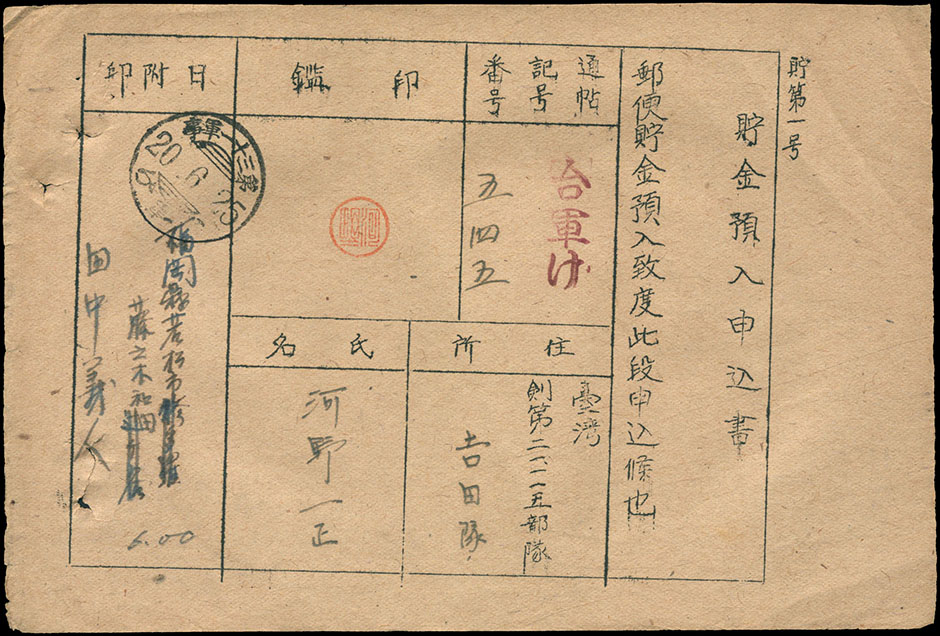 貯第一号
貯金預入申込書
郵便貯金預入致度此段申込候也
通帖
記号
番号
台軍け
五四五
印鑑
河野
日附印
軍事
第三十
20.6.15
住所
臺湾
剣第二、一一五部隊
吉田隊
氏名
河野一正
福岡縣若松市
藤之木
田中義人
6.00